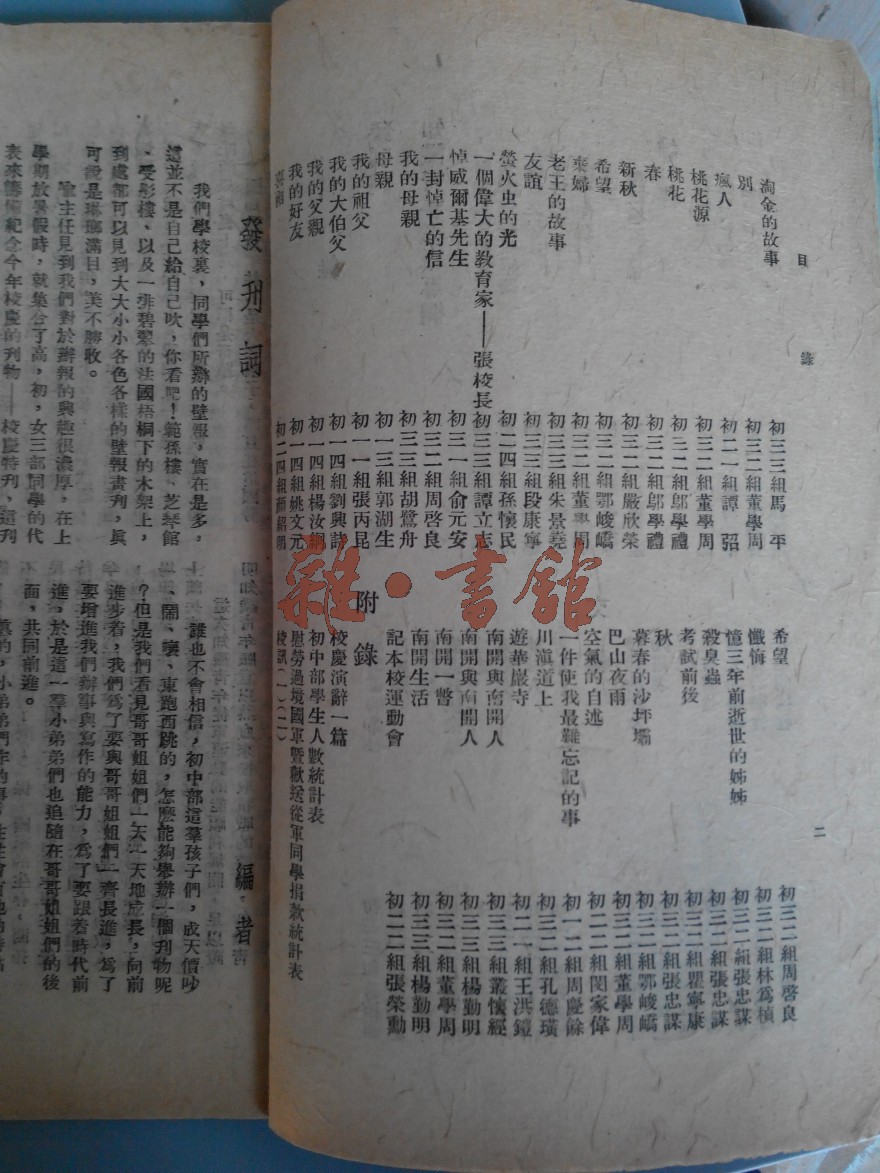 目錄
淘金的故事 初三三組馬平
別 初三二組董學周
瘋人 初二一組譚弨
桃花源 初三二組董學周
桃花 初三二組鄔學禮
春 初三二組鄔學禮
新秋 初三二組嚴欣榮
希望 初三二組鄂峻嶠
棄婦 初三二組董學周
老王的故事 初三三組朱景堯
友誼 初三三組段康寧
螢火虫的光 初二四組孫懷民
一個偉大的教育家——張校長 初三三組譚立志
悼威爾基先生 初三一組俞元安
一封悼亡的信 初三二組周啓良
我的母親 初三三組胡鷺舟
母親 初一三組郭湖生
我的祖父 初一一組張丙昆
我的大伯父 初一四組劉興詩
我的父親 初一四組楊汝綱
我的好友 初一四組姚文元
初二四組
希望 初三二組周啓良
懺悔 初三二組林爲楨
憶三年前逝世的姊姊 初三二組張忠謀
殺臭蟲 初三二組張忠謀
考試前後 初三三組瞿寧康
秋 初三二組張忠謀
暮春的沙坪壩 初三二組鄂峻嶠
巴山夜雨 初三三組董學周
空氣的自述 初二二組閔家偉
一件使我最難忘記的事 初一二組周慶餘
川滇道上 初三二組孔德璜
遊華巖寺 初二一組王洪鎧
南開與南開人 初三三組叢懷經
南開與南開人 初三三組楊勤明
南開一瞥 初三二組董學周
南開生活 初三三組楊勤明
記本校運動會 初二二組張榮勳
附錄
校慶演辭一篇
初中部學生人數統計表
慰勞過境國軍暨歡送從軍同學捐款統計表
校訊(一)(二)
二
發刊詞
編者
我們學校裏，同學們所辦的壁報，實在是多，
這並不是自己給自己吹，你看吧！範孫樓、芝琴館
、受彤樓、以及一排碧翠的法國梧桐下的木架上，
到處都可以見到大大小小各色各樣的壁報畫刋，眞
可說是琳瑯滿目，美不勝收。
喻主任見到我們對於辦報的興趣很濃厚，在上
學期放暑假時，就集合了高，初，女三部同學的代
表來籌備紀念今年校慶的刋物——校慶特刋，這刋
誰也不會相信，初中部這羣孩子們，成天價吵
、鬧、嚷、東跑西跳的，怎麽能夠舉辦一個刋物呢
？但是我們看見哥哥姐姐們一天一天地成長，向前
進步着，我們爲了要與哥哥姐姐們一齊長進，爲了
要增進我們辦事與寫作的能力，爲了要跟着時代前
進，於是這一羣小弟弟們也追隨在哥哥姐姐們的後
面，共同前進。
雜·書館